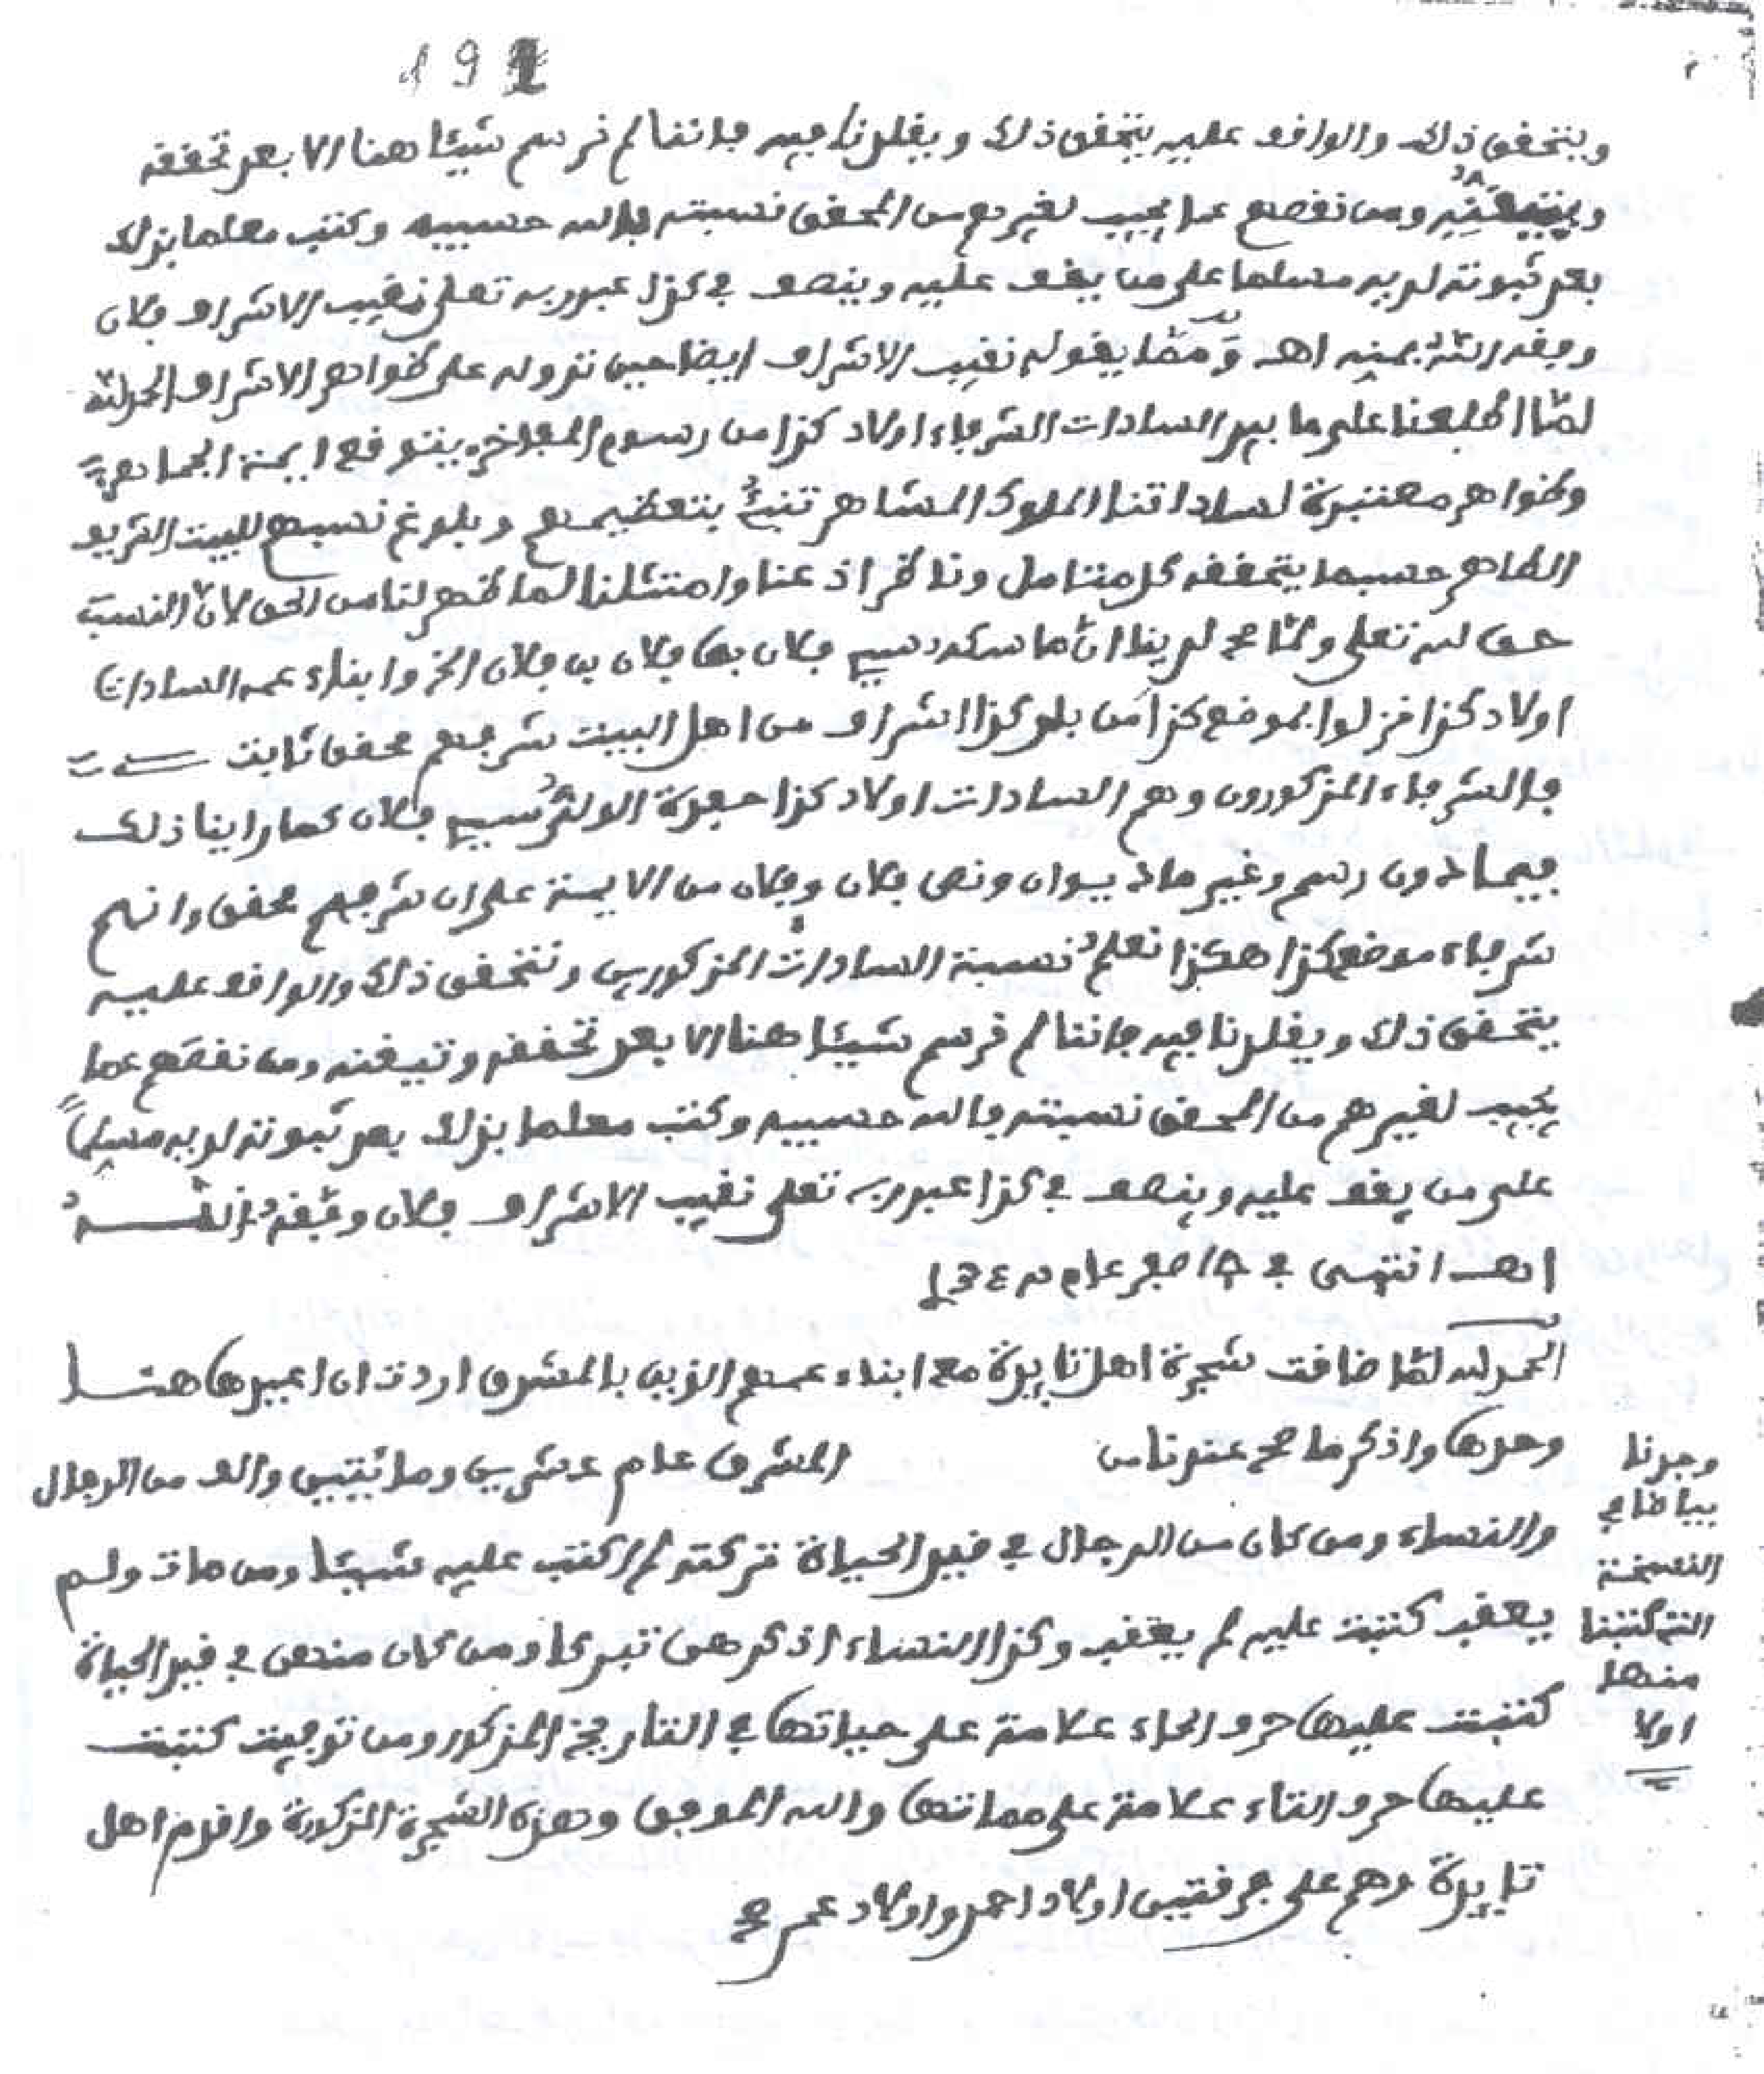 191
ويتحقق ذلك والواقف عليه يتحقق ذلك ويقلدنا فيه فاننا لم نرسم شيئا هنا الا بعد تحققه
ومن نقصهم عما يجب لغيرهم من المحقق نسبته فالله حسيبه وكتب معلما بذلك
بعد ثبوته لديه مسلما على من يقف عليه وينصف في كذا عبد ربه تعلى نقيب الاشراف فلان
وفقه الله بمنه اهـ ومما يقوله نقيب الاشراف ايضا حين نزوله على ظواهر الاشراف الحمد لله
لما اطلعنا على ما بيد السادات الشرفاء اولاد كذا من رسوم المفاخره بتوقع ايمة الجماهر
وظواهر معتبرة لساداتنا الملوك المشاهر تنبئ بتعظيمهم وبلوغ نسبهم للبيت الشريف
الطاهر حسبما يتحققه كل متامل وناظر اذعنا وامتثلنا لما ظهر لنا من الحق لان النسبة
حق لله تعلى ولما صح لدينا ان ماسكه سيد فلان بن فلان بن فلان الخ وابناء عمه السادات
اولاد كذا نزلوا بموضع كذا من بلد كذا اشراف من اهل البيت شرفهم محقق ثابت
فالشرفاء المذكورون وهم السادات اولاد كذا حفدة الولي سيد فلان كما راينا ذلك
فيما دون رسم وغير ما ديوان ونص فلان وفلان من الايمة على ان شرفهم محقق وانهم
شرفاء موضع كذا هكذا نعلم نسبة السادات المذكورين ونتحقق ذلك والواقف عليه
يتحقق ذلك ويقلدنا فيه فاننا لم نرسم شيئا هنا الا بعد تحققه وتيقنه ومن نقصهم عما
يجب لغيرهم من المحقق نسبته فالله حسيبه وكتب معلما بذلك بعد ثبوته لديه مسلما
على من يقف عليه وينصف في كذا عبد ربه تعلى نقيب الاشراف فلان وفقه الله
اهـ انتهى في صفر عام
الحمد لله لما ضاقت شجرة اهل تايدة مع ابناء عمهم الذين بالمشرق اردت ان اعيدها هنا
وحدها واذكر ما صح عندنا من المشرق عام عشرين ومائتين والف من الرجال
والنساء ومن كان من الرجال في قيد الحياة تركته لم اكتب عليه شيئا ومن مات ولم
يعقب كتبت عليه لم يعقب وكذا النساء اذكرهن تبركا ومن كان منهن في قيد الحياة
كتبت عليها حرف الحاء علامة على حياتها في التاريخ المذكور ومن توفيت كتبت
عليها حرف التاء علامة على مماتها والله الموفق وهذه الشجرة المذكورة واقدم اهل
تايدة وهم على فرقتين اولاد احمد واولاد عمر صح
وجدنا
بياضا في
النسخة
التي كتبنا
منها
اولا